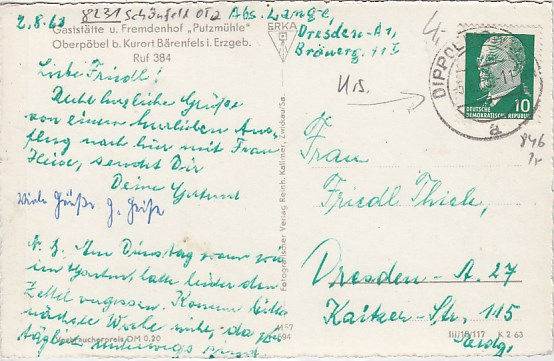 2.8.63
8231 Schönfeld OT 2
Abs. Lange,
Dresden-A1,
Gaststätte u. Fremdenhof „Putzmühle"
Oberpöbel b. Kurort Bärenfels i. Erzgeb.
Ruf 384
ERKA
DIPPOL
a
10
DEUTSCHE
DEMOKRATISCHE REPUBLIK
846
Liebe Friedl!
Recht herzliche Grüße
von einem herrlichen Aus-
flug nach hier mit Frau
Heide, sendet Dir
Deine Gertrud
Viele Grüße
N. B. Am Dienstag waren wir
im Garten, habe leider den
Zettel vergessen. Komme bitte
nächste Woche mit, da
täglich
Frau
Friedl Thiele,
Dresden-A. 27
Kaitzer-Str. 115
Fotografischer Verlag Reinh. Kallmer, Zwickau/Sa.
Verbraucherpreis DM 0.20
III/18/117 K 2 63